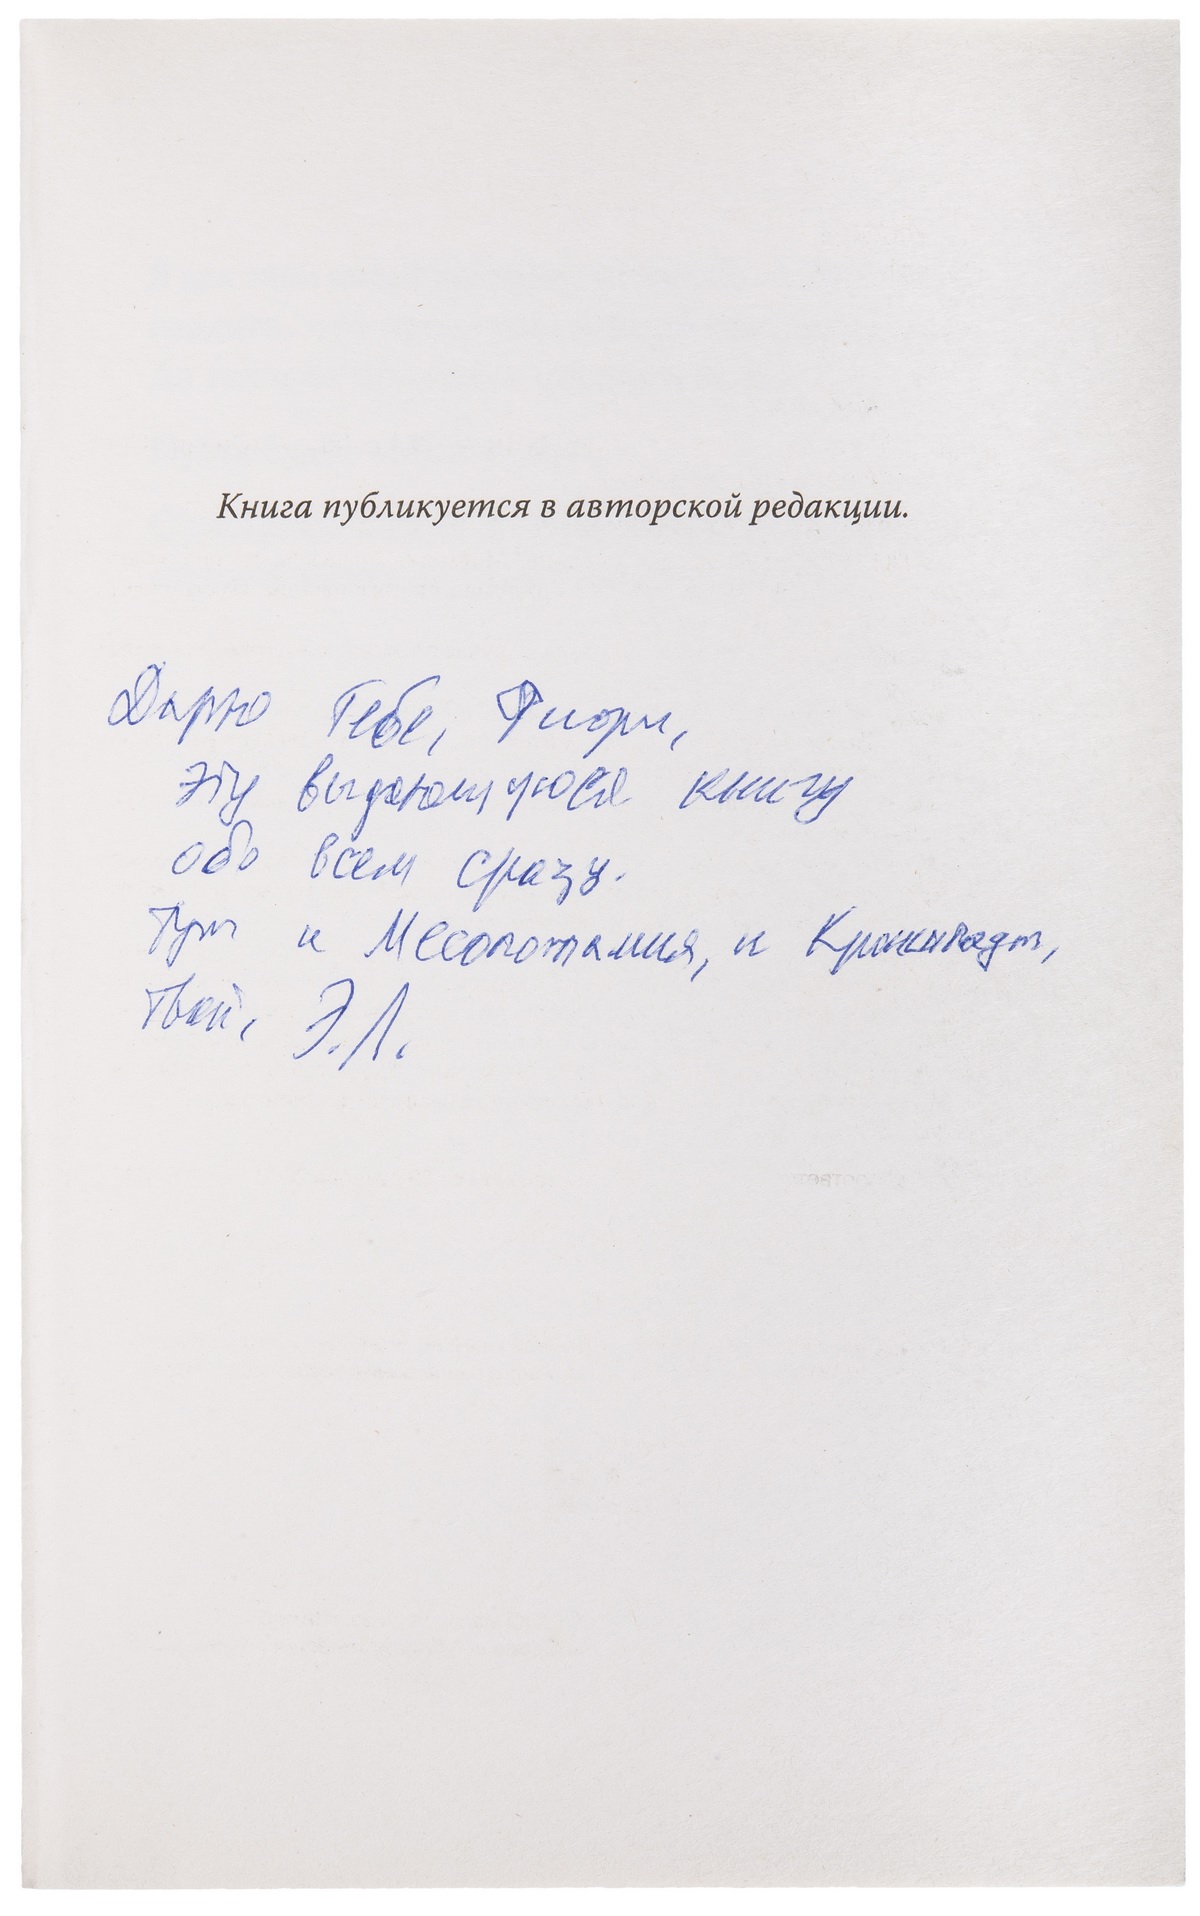 Книга публикуется в авторской редакции.
Дарю Тебе, Фиори,
эту выдающуюся книгу
обо всем сразу.
Тут и Месопотамия, и Кронштадт,
Твой, Э.Л.